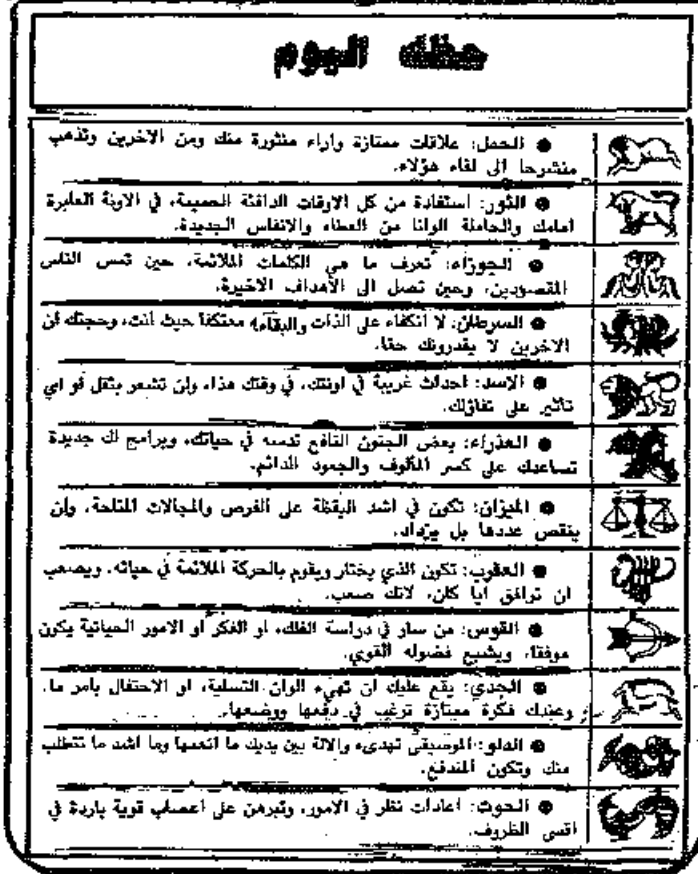 حظك اليوم
● الحمل: علاقات ممتازة واراء منثورة منك ومن الاخرين وتذهب
منشرحا الى لقاء هؤلاء.
● الثور: استفادة من كل الاوقات الدافئة الحميمة، في الاونة العابرة
امامك والحاملة الوانا من العطاء والانفاس الجديدة.
● الجوزاء: تعرف ما هي الكلمات الملائمة، حين تمس الناس
المقصودين، وحين تصل الى الأهداف الاخيرة.
● السرطان: لا انكفاء على الذات والبقاء معتكفا حيث انت، وحجتك ان
الاخرين لا يقدرونك حقا.
● الاسد: احداث غريبة في اونتك، في وقتك هذا، ولن تشعر بثقل او اي
تأثير على تفاؤلك.
● العذراء: بعض الجنون النافع تدسه في حياتك، وبرامج لك جديدة
تساعدك على كسر المألوف والجمود الدائم.
● الميزان: تكون في اشد اليقظة على الفرص والمجالات المتاحة، ولن
ينقص عددها بل يزداد.
● العقرب: تكون الذي يختار ويقوم بالحركة الملائمة في حياته، ويصعب
ان توافق ايا كان، لانك صعب.
● القوس: من سار في دراسة الفلك، او الفكر او الامور الحياتية يكون
موفقا، ويشبع فضوله القوي.
● الجدي: يقع عليك ان تهيء الوان التسلية، او الاحتفال بامر ما،
وعندك فكرة ممتازة ترغب في دفعها ووضعها.
● الدلو: الموسيقى تهدىء والالة بين يديك ما انعمها وما اشد ما تتطلب
منك وتكون المندفع.
● الحوت: اعادات نظر في الامور، وتبرهن على اعصاب قوية باردة في
اقسى الظروف.